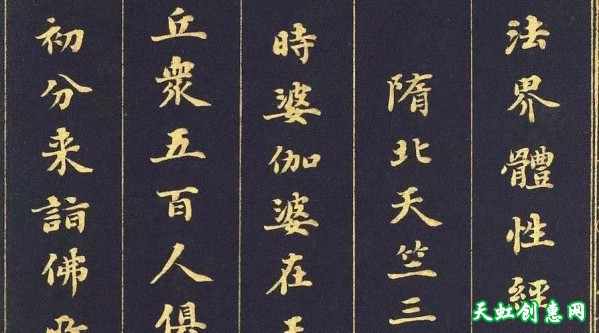 法界體性經
隋北天竺三
時婆伽婆在
丘衆五百人俱
初分来詣佛
天虹创惠网